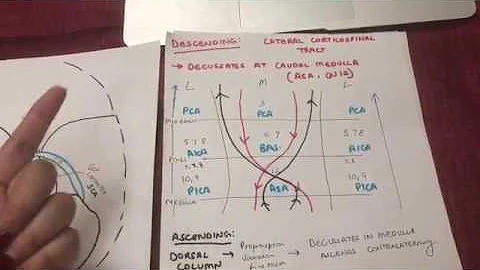 DESCENDING: LATERAL CORTICOSPINAL
TRACT
→ DECUSSATES AT CAUDAL MEDULLA
(ASA, CN12)
L M L
PCA PCA
MIDBRAIN
5 7 8 6,7 5 7 8
AICA BAS. AICA
PONS
10, 9 10, 9
PICA ASA PICA
MEDULLA
ASCENDING:
DORSAL → Proprioception → DECUSSATES IN MEDULLA
COLUMN Vibration ASCENDS CONTRALATERALLY
Fine touch
SCA